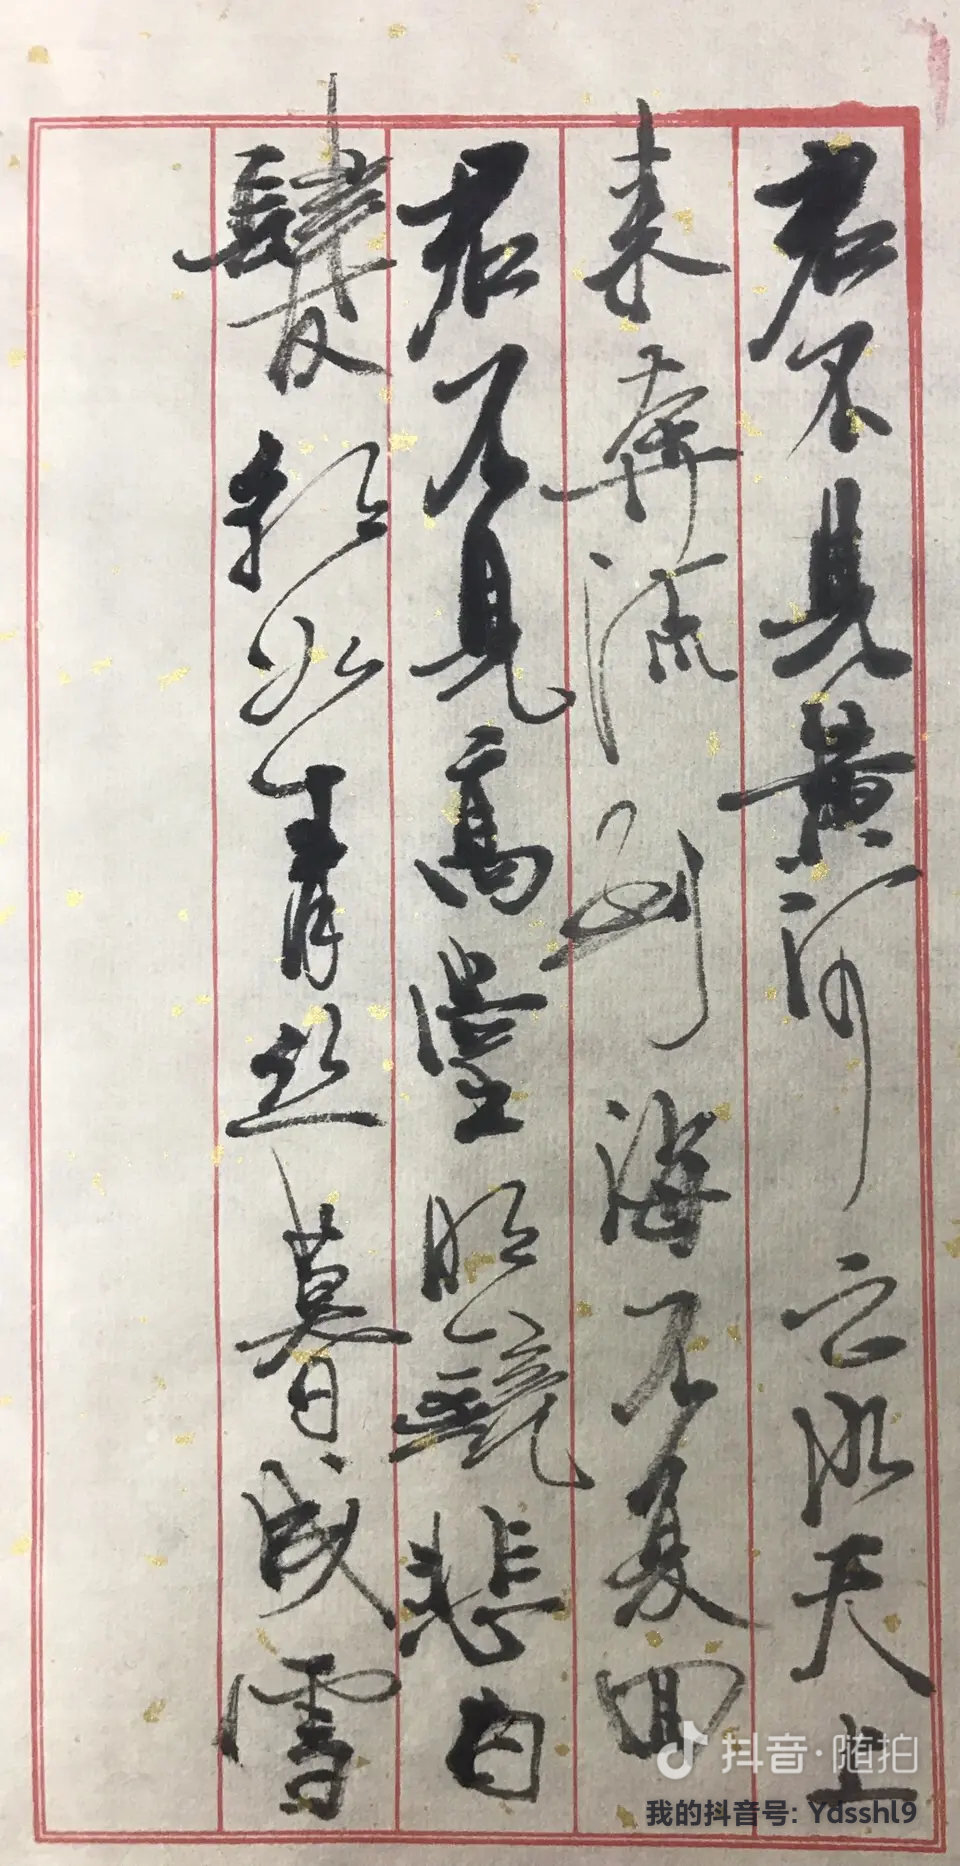 君不見黃河之水天上
来奔流到海不复回
君不見高臺明鏡悲白
髮朝如青丝暮成雪
抖音·随拍
我的抖音号: Ydsshl9